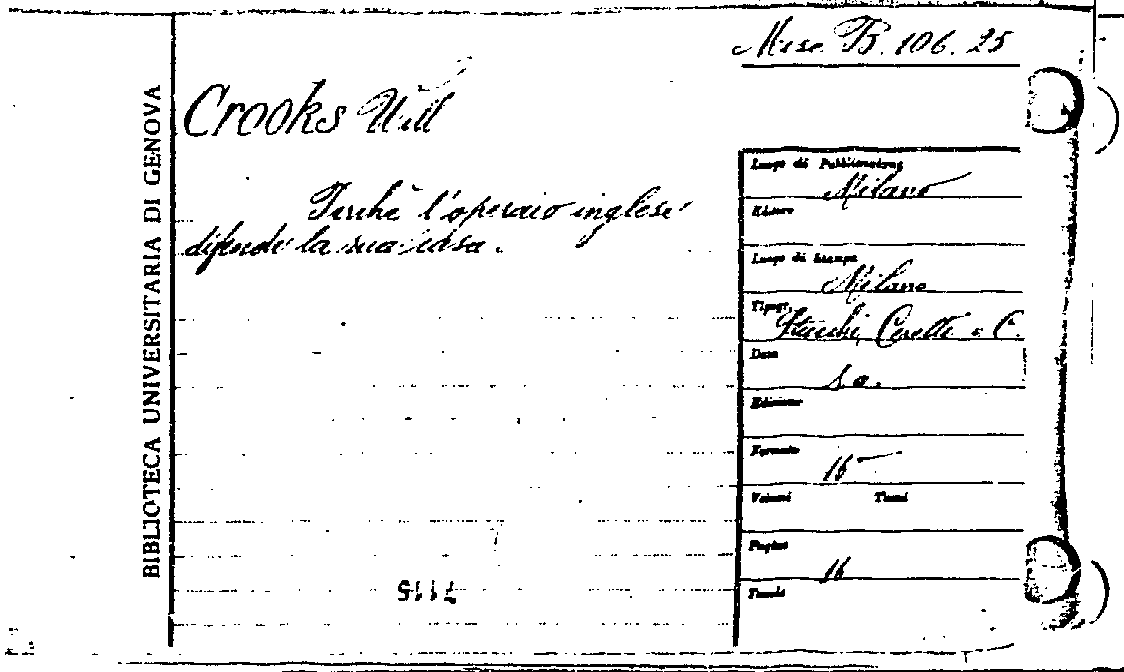 Misc. B. 106. 25
BIBLIOTECA UNIVERSITARIA DI GENOVA
Crooks Will
Perchè l'operaio inglese
difende la sua casa.
Luogo di Pubblicazione
Milano
Editore
Luogo di Stampa
Milano
Tipogr.
Stucchi, Ceretti e C.
Data
s. a.
Edizione
Formato
16°
Volumi Tomi
Pagine
16
Tavole
7115